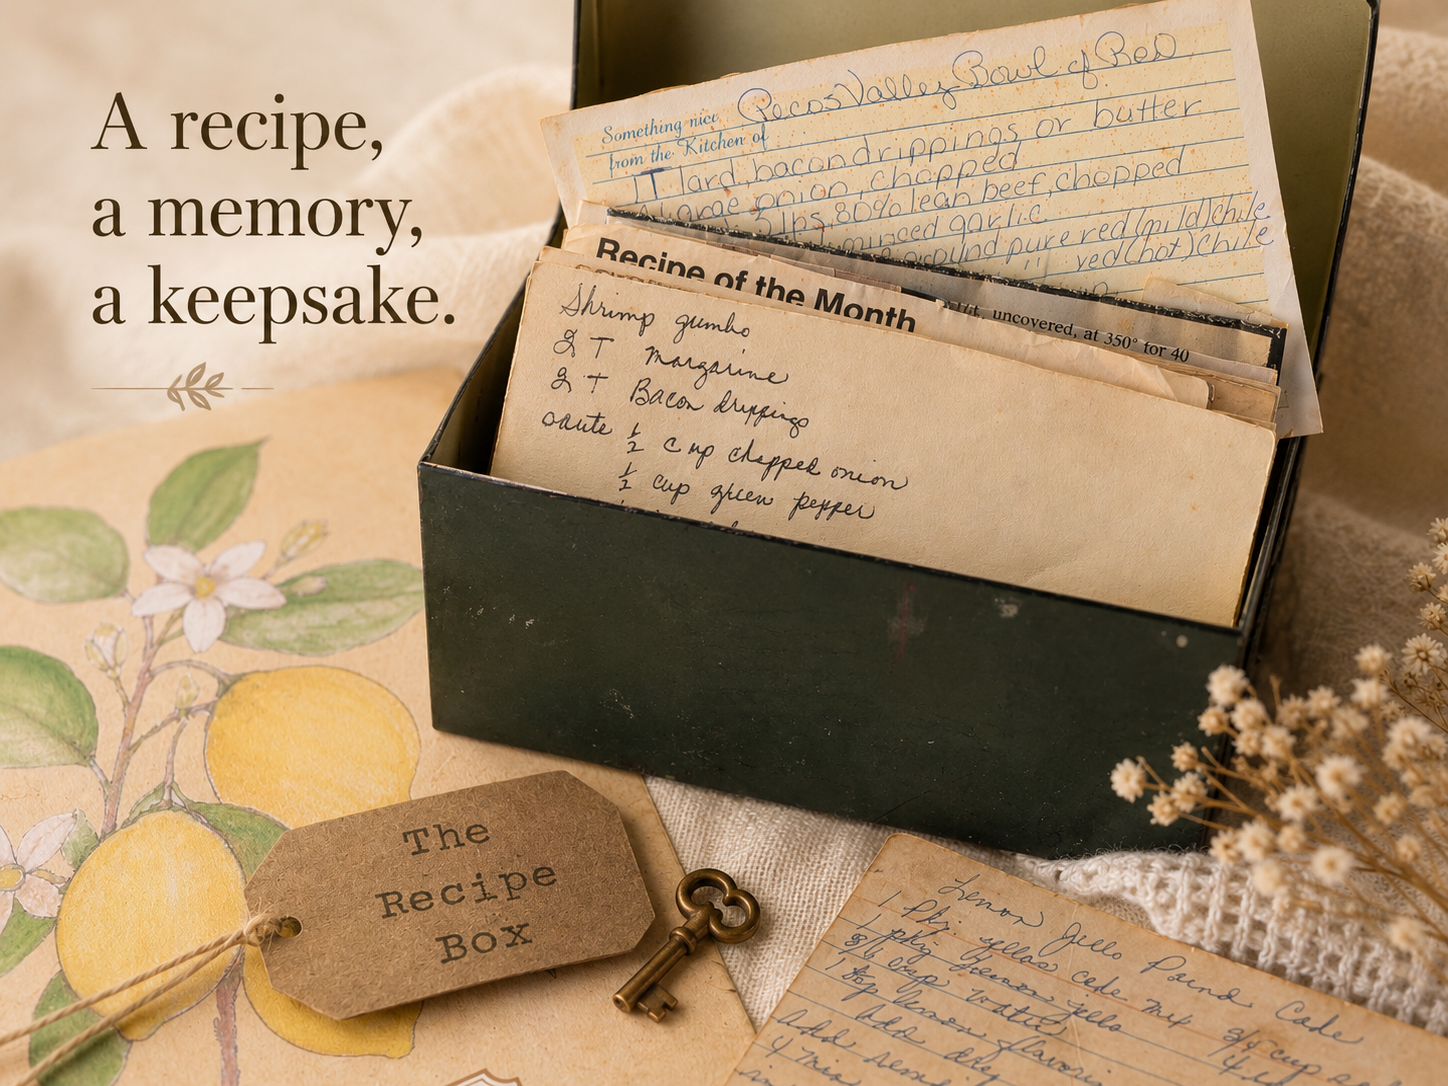 A recipe,
a memory,
a keepsake.
Pecos Valley Bowl of Red
Something nice
from the Kitchen of
1 T lard, bacon drippings or butter
large onion, chopped
lbs. 80% lean beef, chopped
minced garlic
ground pure red (mild) chile
" " red (hot) chile
Recipe of the Month
uncovered, at 350° for 40
Shrimp gumbo
2 T margarine
2 T Bacon drippings
saute 1/2 cup chopped onion
1/2 cup green pepper
The
Recipe
Box
Lemon Jello Pound Cake
1 pkg. yellow cake mix 3/4 cup
1 pkg lemon jello 4
3/4 cup water
1 tsp lemon
Add